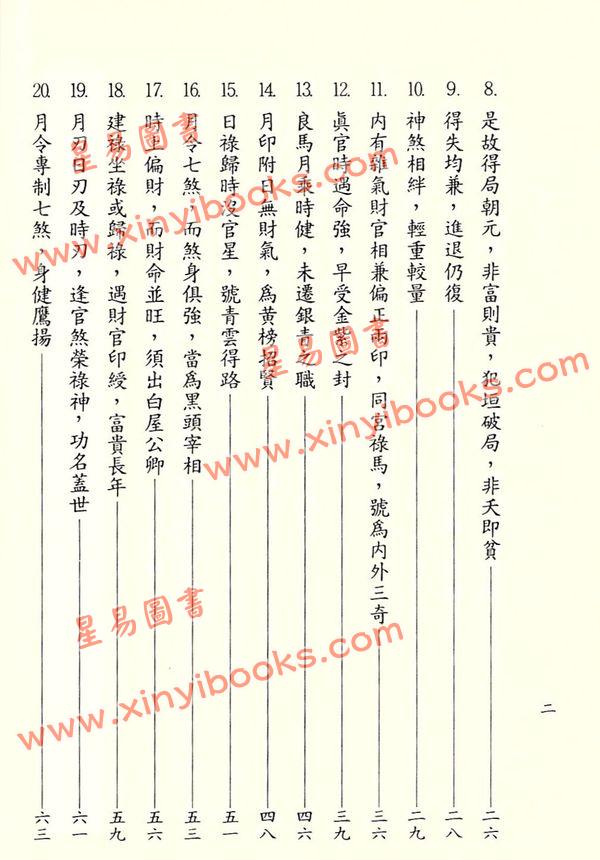 8. 是故得局朝元，非富則貴，犯垣破局，非夭即貧 二六
9. 得失均兼，進退仍復 二八
10. 神煞相絆，輕重較量 二九
11. 內有雜氣財官相兼偏正兩印，同宮祿馬，號爲內外三奇 三六
12. 眞官時遇命強，早受金紫之封 三九
13. 良馬月乘時健，未遷銀青之職 四六
14. 月印附日無財氣，爲黃榜招賢 四八
15. 日祿歸時沒官星，號青雲得路 五一
16. 月令七煞，而煞身俱強，當爲黑頭宰相 五三
17. 時上偏財，而財命並旺，須出白屋公卿 五六
18. 建祿坐祿或歸祿，遇財官印綬，富貴長年 五九
19. 月刃日刃及時刃，逢官煞榮祿神，功名蓋世 六一
20. 月令專制七煞，身健鷹揚 六三
二
星易圖書
www.xinyibooks.com
星易圖書
www.xinyibooks.com
星易圖書
www.xinyibooks.com